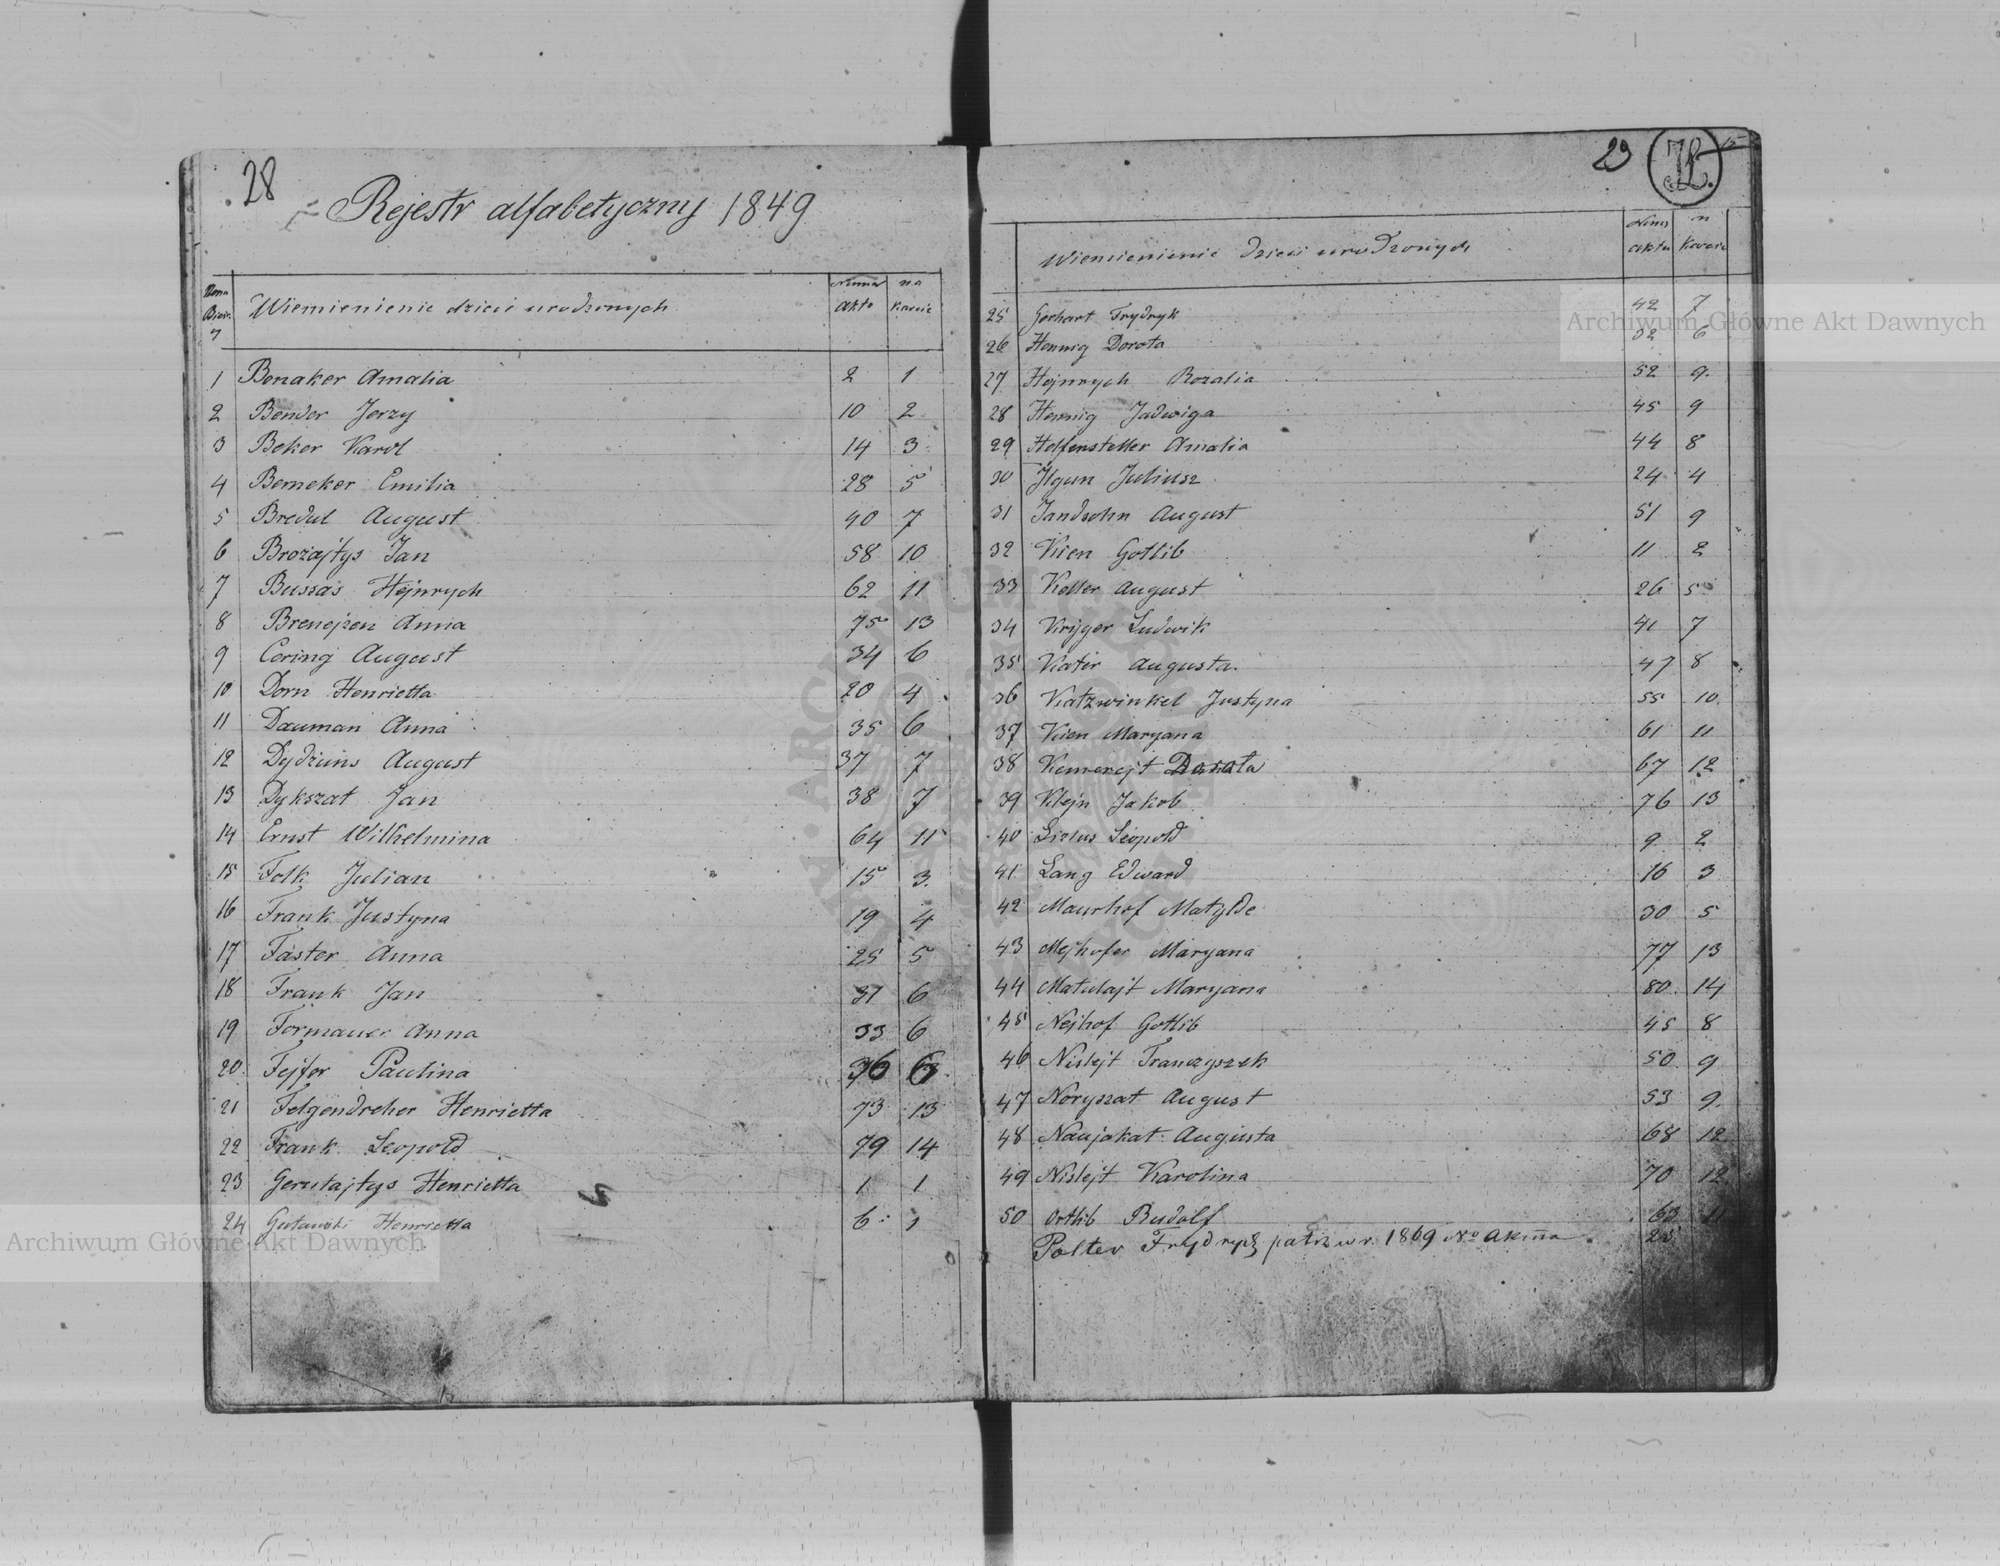 28
Rejestr alfabetyczny 1849
Wiemienienie dzieci urodzonych Numer Akto na Karcie
1 Benaker Amalia 2 1
2 Bender Jerzy 10 2
3 Beker Karol 14 3
4 Berneker Emilia 28 5
5 Bredul August 40 7
6 Brozajtys Jan 58 10
7 Bussas Hejnrych 62 11
8 Brenejzen Anna 75 13
9 Cering August 34 6
10 Dorn Henrietta 20 4
11 Dauman Anna 35 6
12 Dydzuns August 37 7
13 Dykszat Jan 38 7
14 Ernst Wilhelmina 64 11
15 Folk Julian 15 3
16 Frank Justyna 19 4
17 Faster Anna 25 5
18 Frank Jan 31 6
19 Formauer Anna 33 6
20 Fejfer Paulina 36 6
21 Felgendreher Henrietta 73 13
22 Frank Leopold 79 14
23 Gerutajtys Henrietta 1 1
24 Gutowski Henrietta 6 1
29
Wiemienienie dzieci urodzonych Numer aktu n Karcie
25 Gerhart Frydryk 42 7
26 Hennig Dorota 32 6
27 Hejnrych Rozalia 52 9
28 Hennig Jadwiga 45 9
29 Helfensteller Amalia 44 8
30 Ilgun Juliusz 24 4
31 Jandsohn August 51 9
32 Kien Gotlib 11 2
33 Keller August 26 5
34 Kryger Ludwik 41 7
35 Katir Augusta 47 8
36 Katzwinkel Justyna 55 10
37 Kien Maryana 61 11
38 Kemerejt Dorota 67 12
39 Klejn Jakob 76 13
40 Leopold 9 2
41 Lang Edward 16 3
42 Maurhof Matylde 30 5
43 Mejhofer Maryana 77 13
44 Matulajt Maryana 80 14
45 Nejhof Gotlib 45 8
46 Nislejt Franczyszek 50 9
47 Noryszat August 53 9
48 Naujokat Augusta 68 12
49 Nislejt Karolina 70 12
50 Ortlib Rudolf 63 11
Polter Frydrych patrz w r. 1869 No 25
Archiwum Główne Akt Dawnych
Archiwum Główne Akt Dawnych